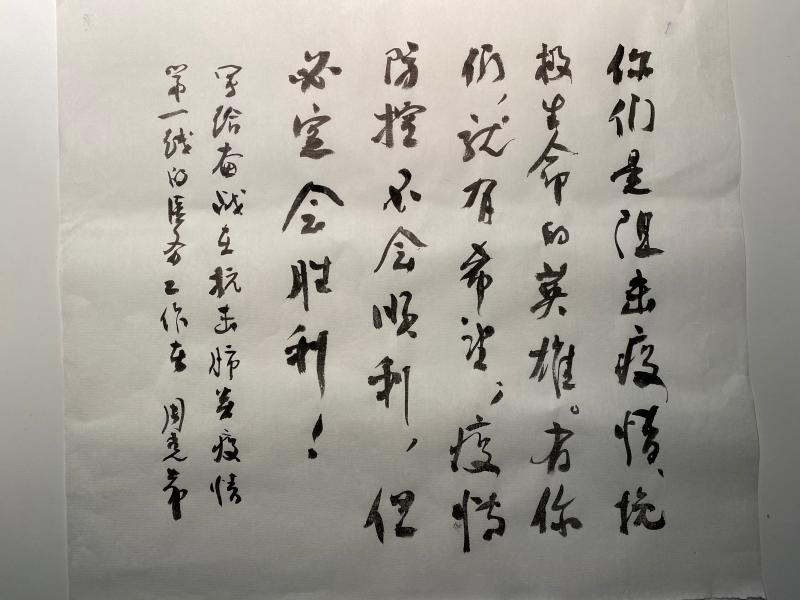 你们是阻击疫情、挽
救生命的英雄。有你
们，就有希望；疫情
防控不会顺利，但
必定会胜利！
写给奋战在抗击肺炎疫情
第一线的医务工作者 周